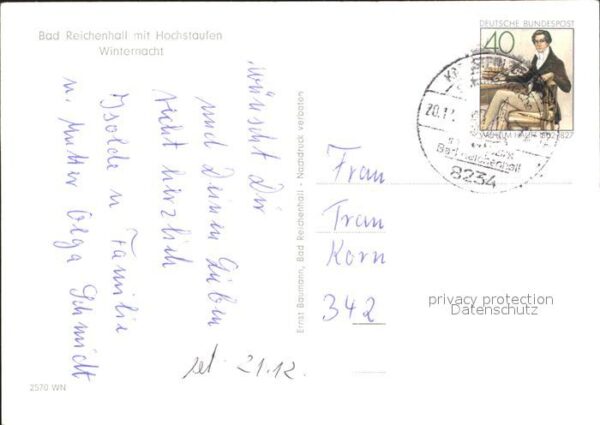 Bad Reichenhall mit Hochstaufen
Winternacht
wünscht Dir
und Deinen Lieben
recht herzlich
Isolde u Familie
u. Mutter Olga Schmidt
ret. 21.12.
2570 WN
Ernst Baumann, Bad Reichenhall - Nachdruck verboten
DEUTSCHE BUNDESPOST
40
WILHELM HAUFF 1802-1827
20.12
Bad Reichenhall
8234
Frau
Frau
Korn
342
privacy protection
Datenschutz